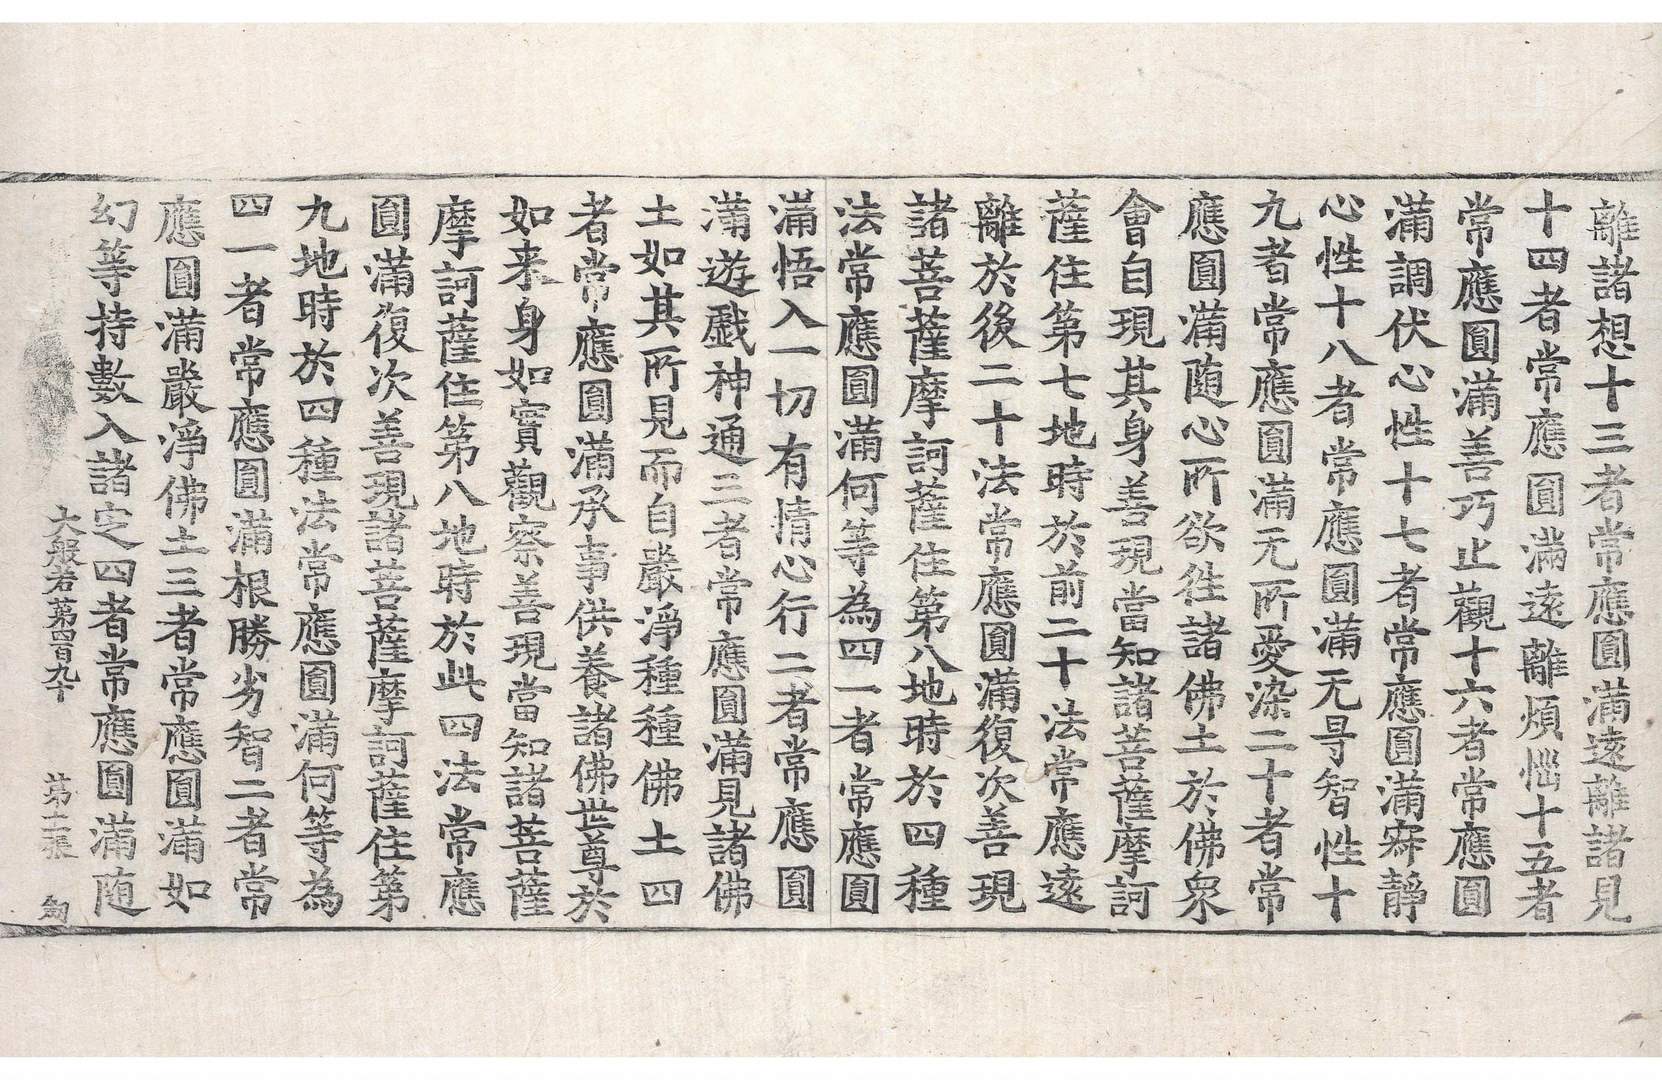 離諸想十三者常應圓滿遠離諸見
十四者常應圓滿遠離煩惱十五者
常應圓滿善巧止觀十六者常應圓
滿調伏心性十七者常應圓滿寂靜
心性十八者常應圓滿无㝵智性十
九者常應圓滿无所愛染二十者常
應圓滿随心所欲徃諸佛土於佛衆
會自現其身善現當知諸菩薩摩訶
薩住第七地時於前二十法常應遠
離於後二十法常應圓滿復次善現
諸菩薩摩訶薩住第八地時於四種
法常應圓滿何等為四一者常應圓
滿悟入一切有情心行二者常應圓
滿遊戱神通三者常應圓滿見諸佛
土如其所見而自嚴淨種種佛土四
者常應圓滿承事供養諸佛世尊於
如来身如實觀察善現當知諸菩薩
摩訶薩住第八地時於此四法常應
圓滿復次善現諸菩薩摩訶薩住第
九地時於四種法常應圓滿何等為
四一者常應圓滿根勝劣智二者常
應圓滿嚴淨佛土三者常應圓滿如
幻等持數入諸定四者常應圓滿随
大般若第四百九十 第十二張